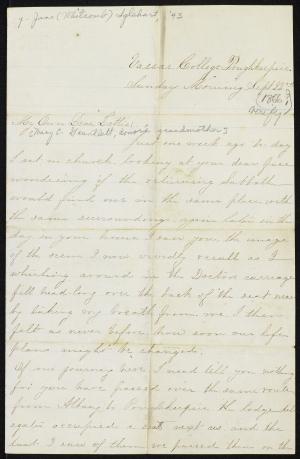 g. Jane (Whitcomb) Iglehart, '93
Vassar College Poughkeepsie.
Sunday Morning Sept 23rd
(1866)
My Own Dear Lottie,
[Mary C. donor's grandmother]
Just one week ago to day
I sat in church, looking at your dear face
wondering if the returning Sabbath
would find one in the same place with
the same surrounding. again later in the
day in your home I saw you, the image
of the scene I now vividly recall as I
whirling around in the Doctors carriage
fell head long over the back of the seat near
by taking my breath from me. I then
felt as never before how soon our lifes
plans might be changed.
Of our journey here I need tell you nothing
for you have passed over the same route
from Albany to Poughkeepsie the
again occupied a seat next us and the
last I saw of them we passed them on the